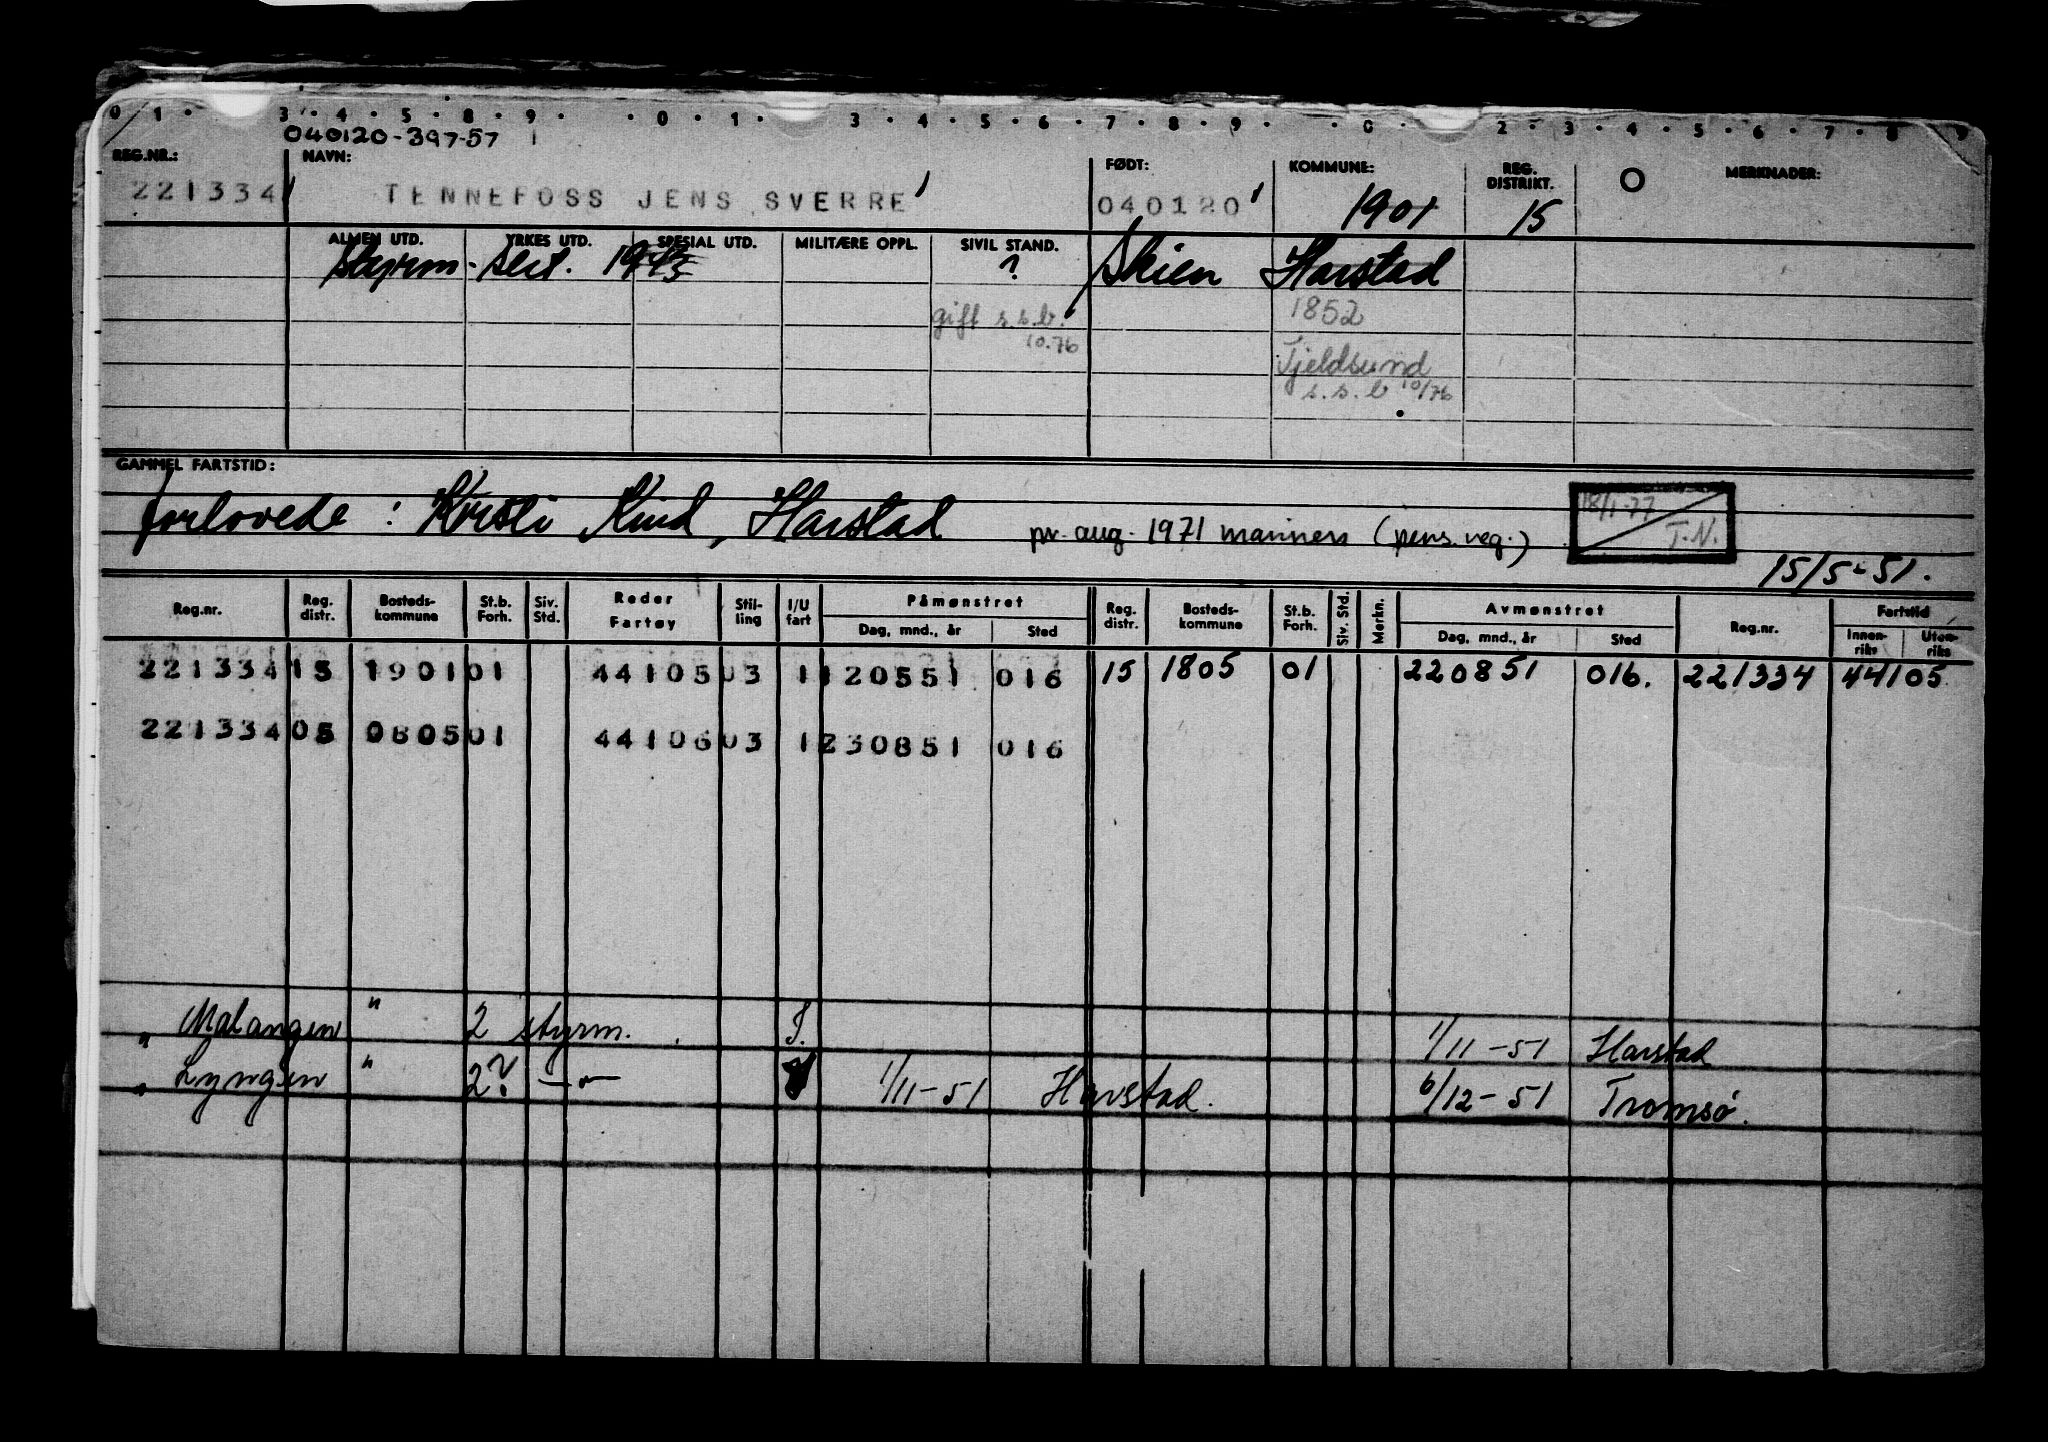 0 1 · 3 · 4 · 5 · 8 · 9 · · 0 · 1 · 3 · 4 · 5 · 6 · 7 · 8 · 9 · · 0 · 2 · 3 · 4 · 5 · 6 · 7 · 8 · 9
040120-397-57
REG.NR.: NAVN: FØDT: KOMMUNE: REG. DISTRIKT. O MERKNADER:
221334 TENNEFOSS JENS SVERRE 040120 1901 15
ALMEN UTD. YRKES UTD. SPESIAL UTD. MILITÆRE OPPL. SIVIL STAND.
Styrm. sert. 1943 ? Skien Harstad
gift s.s.b. 1852
10.76
Tjeldsund
s.s.b 10/76
GAMMEL FARTSTID:
forlovede : Kirsti Kind, Harstad pr. aug. 1971 mariners (pens.reg.) 18/1-77 T.N.
15/5-51.
Reg.nr. Reg. distr. Bosteds-kommune St.b. Forh. Siv. Std. Reder Fartøy Stil-ling I/U fart Påmønstret Reg. distr. Bosteds-kommune St.b. Forh. Siv. Std. Merkn. Avmønstret Reg.nr. Fartstid
Dag, mnd., år Sted Dag, mnd., år Sted Innen-riks Uten-riks
221334 15 1901 01 44105 03 1 120551 016 15 1805 01 220851 016. 221334 44105
221334 05 0805 01 44106 03 1 230851 016
" Malangen " 2 styrm. I. 1/11-51 Harstad
" Lyngen " 2? —"— 1/11-51 Harstad. 6/12-51 Tromsø.